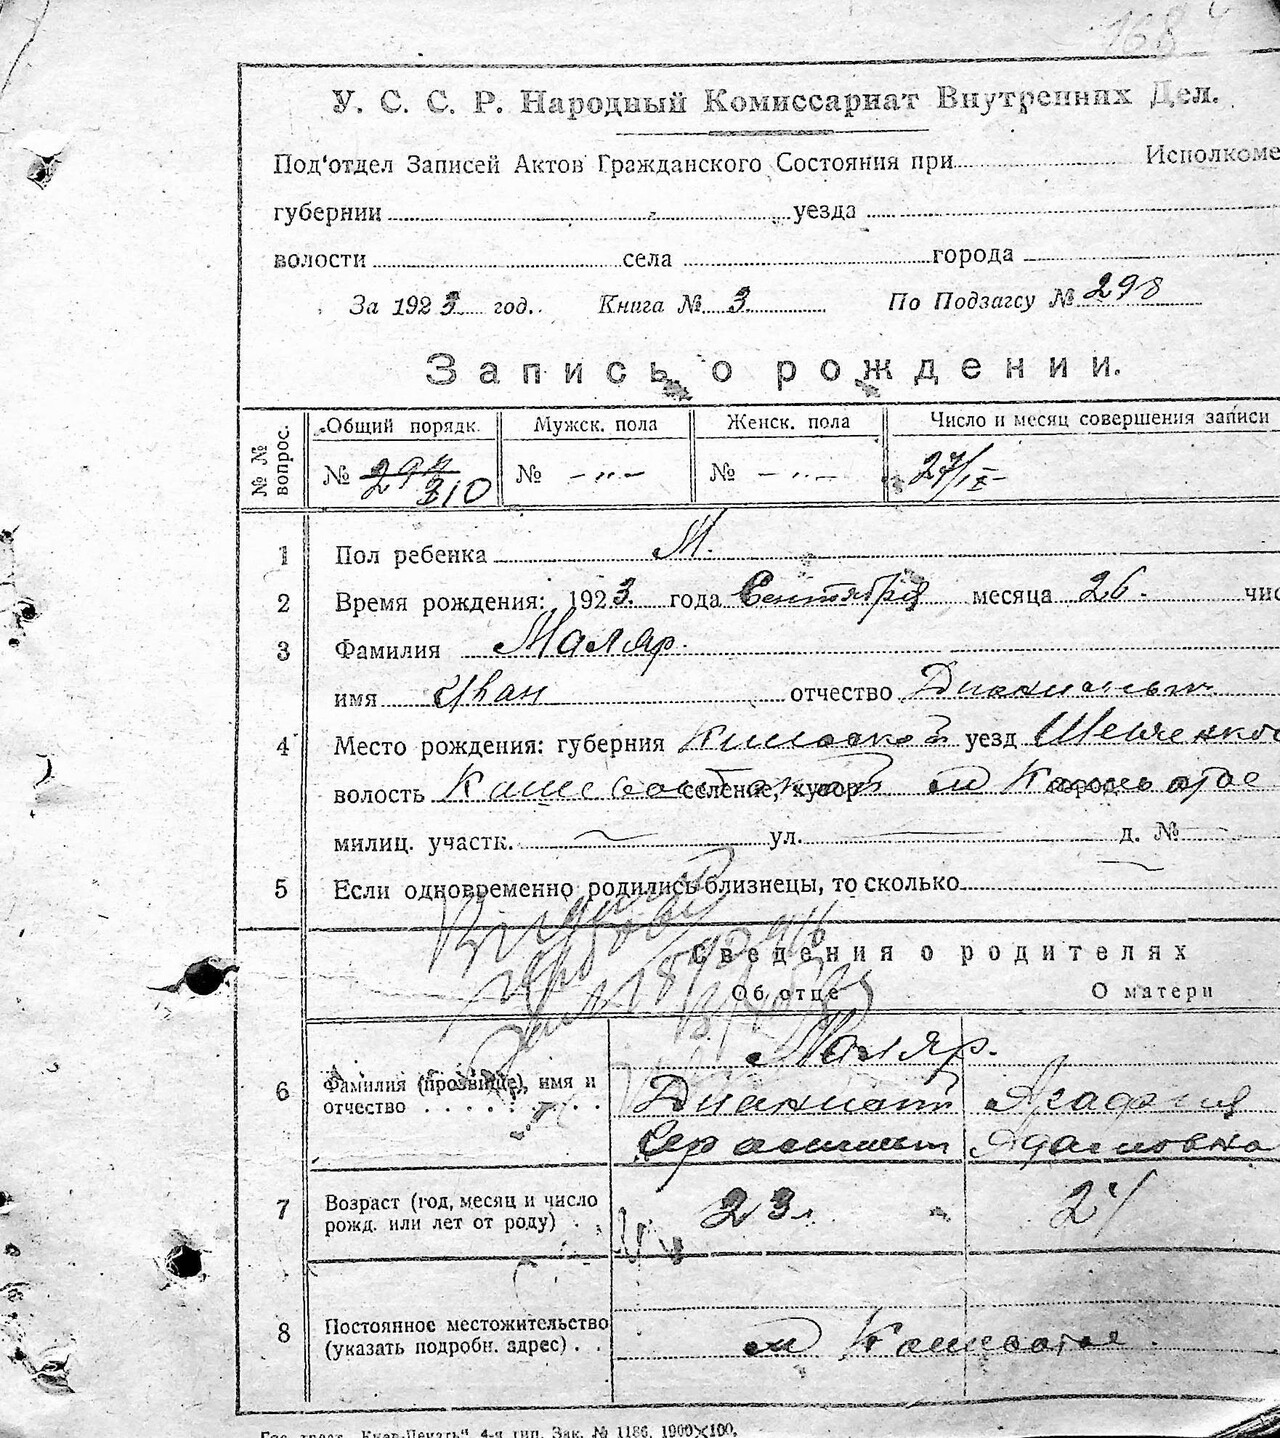 168
У. С. С. Р. Народный Комиссариат Внутренних Дел.
Под'отдел Записей Актов Гражданского Состояния при Исполкоме
губернии уезда
волости села города
За 1923 год. Книга № 3 По Подзагсу № 298
Запись о рождении.
№ № вопрос. Общий порядк. Мужск. пола Женск. пола Число и месяц совершения записи
№ 310 № - „ - № - „ - 27/IX
1 Пол ребенка М.
2 Время рождения: 1923 года Сентября месяца 26 чис
3 Фамилия Маляр.
имя Иван отчество
4 Место рождения: губерния Киевская уезд Шевченко
волость селение, хутор город м Кашеватое
милиц. участк. ул. д. №
5 Если одновременно родились близнецы, то сколько
Сведения о родителях
Об отце О матери
Маляр.
6 Фамилия (прозвище), имя и Агафия
отчество Адамовна
7 Возраст (год, месяц и число 23 л. 24
рожд. или лет от роду)
8 Постоянное местожительство
(указать подробн. адрес) м Кашеватое.
Гос. трест „Киев-Печать“ 4-я тип. Зак. № 1186. 1000×100.